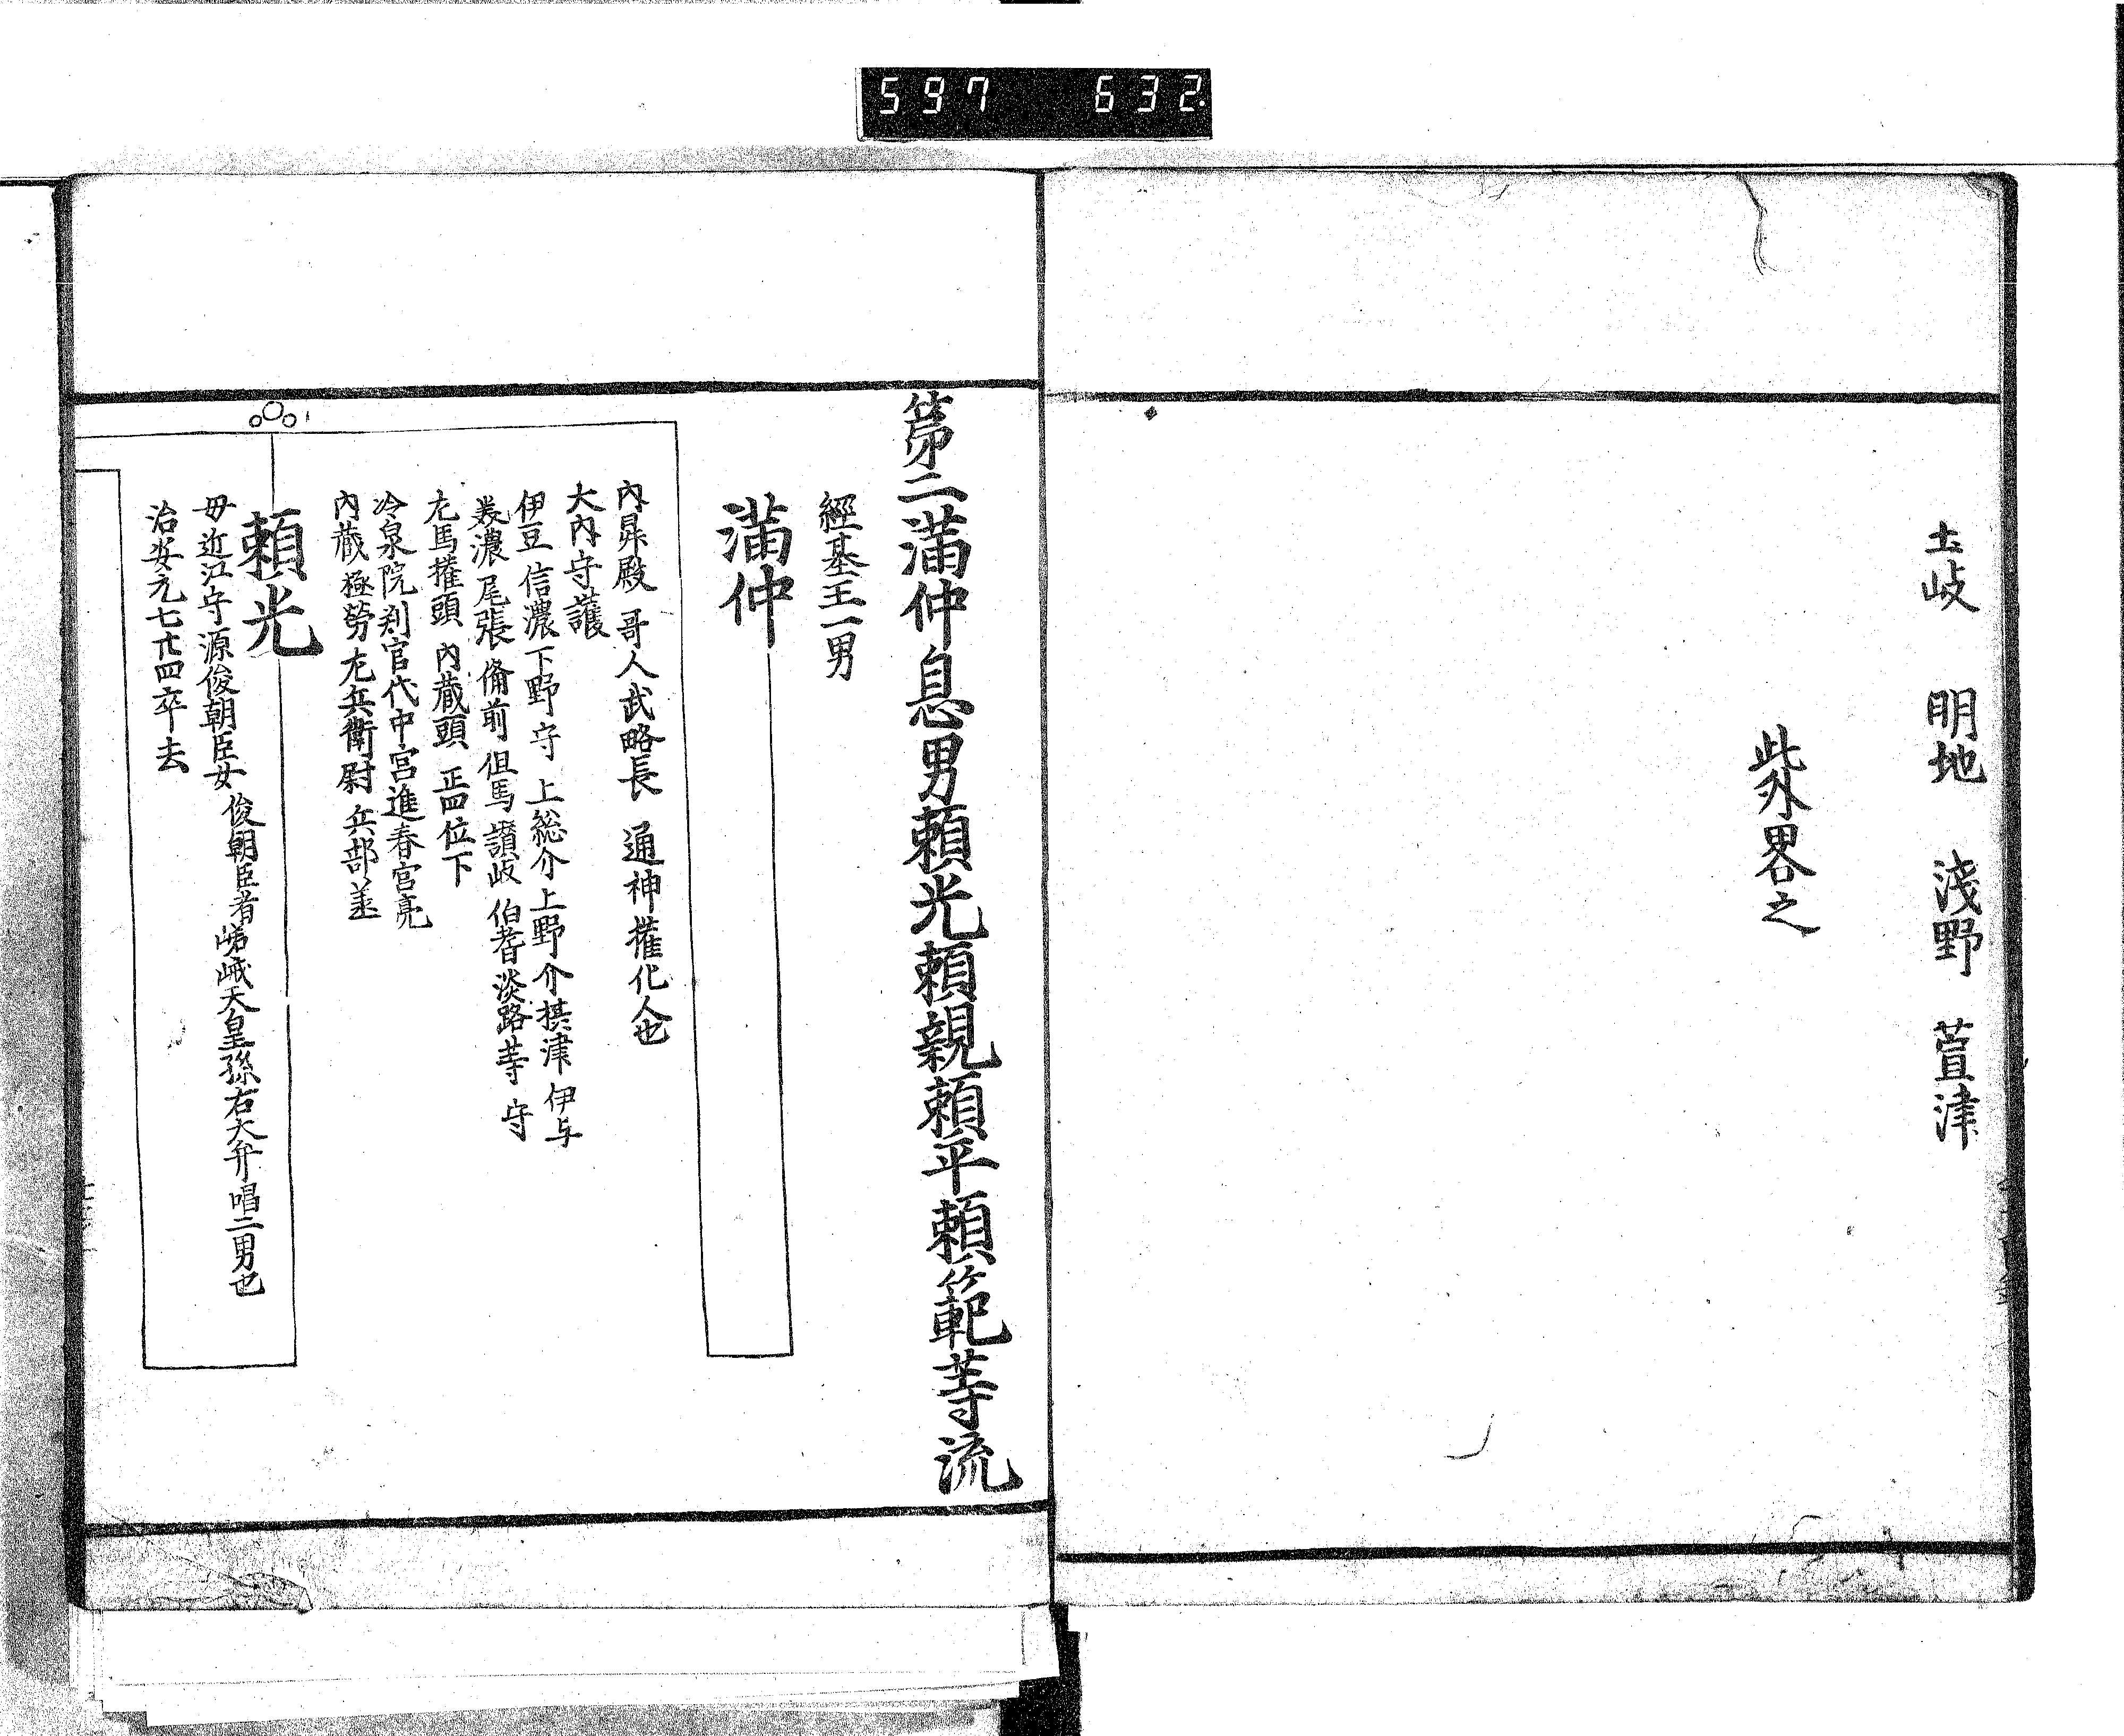 597 632
土岐 明地 淺野 萱津
此外畧之
第二滿仲息男頼光頼親頼平頼範等流
經基王一男
滿仲
內昇殿 哥人武略長 通神權化人也
大內守護
伊豆 信濃 下野守 上総介 上野介 摂津 伊与
美濃 尾張 備前 但馬 讃岐 伯耆 淡路等守
左馬權頭 內蔵頭 正四位下
冷泉院判官代 中宮進 春宮亮
內蔵極勞 左兵衛尉 兵部丞
頼光
母近江守源俊朝臣女 俊朝臣者嵯峨天皇孫右大弁唱二男也
治安元七廿四卒去